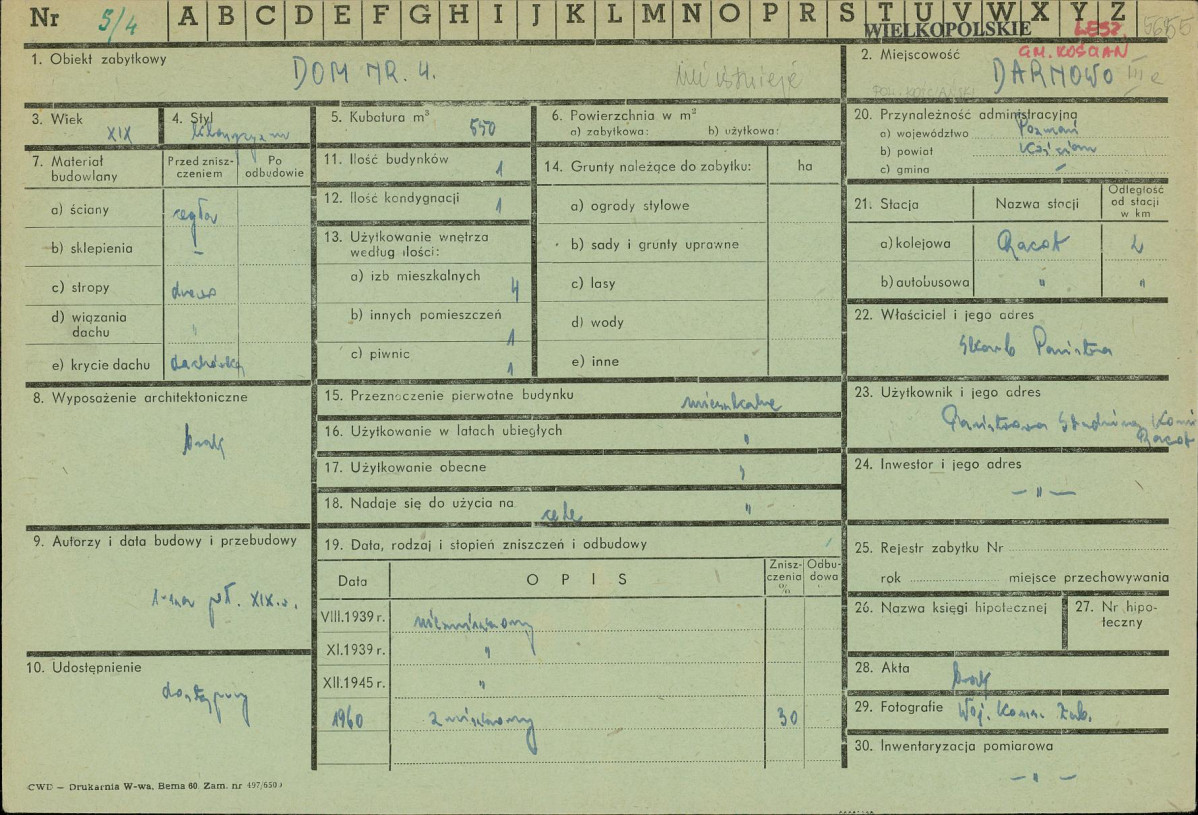 Nr 5/4 A B C D E F G H I J K L M N O P R S T U V W X Y Z
WIELKOPOLSKIE LESZ.
GM. KOŚCIAN
1. Obiekt zabytkowy
DOM NR. 4. nie istnieje
2. Miejscowość
DARNOWO III
3. Wiek
XIX
4. Styl
5. Kubatura m³
550
6. Powierzchnia w m²
a) zabytkowa: b) użytkowa:
20. Przynależność administracyjna
a) województwo Poznań
b) powiat Kościan
c) gmina –
7. Materiał budowlany
Przed zniszczeniem
Po odbudowie
a) ściany cegła
b) sklepienia –
c) stropy drewno
d) wiązania dachu "
e) krycie dachu dachówka
11. Ilość budynków 1
12. Ilość kondygnacji 1
13. Użytkowanie wnętrza według ilości:
a) izb mieszkalnych 4
b) innych pomieszczeń 1
c) piwnic 1
14. Grunty należące do zabytku: ha
a) ogrody stylowe
b) sady i grunty uprawne
c) lasy
d) wody
e) inne
21. Stacja Nazwa stacji Odległość od stacji w km
a) kolejowa Racot 2
b) autobusowa " "
22. Właściciel i jego adres
Skarb Państwa
8. Wyposażenie architektoniczne
brak
15. Przeznaczenie pierwotne budynku mieszkalne
16. Użytkowanie w latach ubiegłych "
17. Użytkowanie obecne "
18. Nadaje się do użycia na cele "
23. Użytkownik i jego adres
Państwowa Stadnina Koni
Racot
24. Inwestor i jego adres
– " –
9. Autorzy i data budowy i przebudowy
1-sza poł. XIX w.
19. Data, rodzaj i stopień zniszczeń i odbudowy
Data OPIS Zniszczenia % Odbudowa "
VIII.1939 r. niezniszczony
XI.1939 r. "
XII.1945 r. "
1960 zniszczony 30
25. Rejestr zabytku Nr
rok miejsce przechowywania
26. Nazwa księgi hipotecznej
27. Nr hipoteczny
10. Udostępnienie
dostępny
28. Akta brak
29. Fotografie Woj. Konse. Zab.
30. Inwentaryzacja pomiarowa
– " –
CWD – Drukarnia W-wa, Bema 60. Zam. nr 497/650